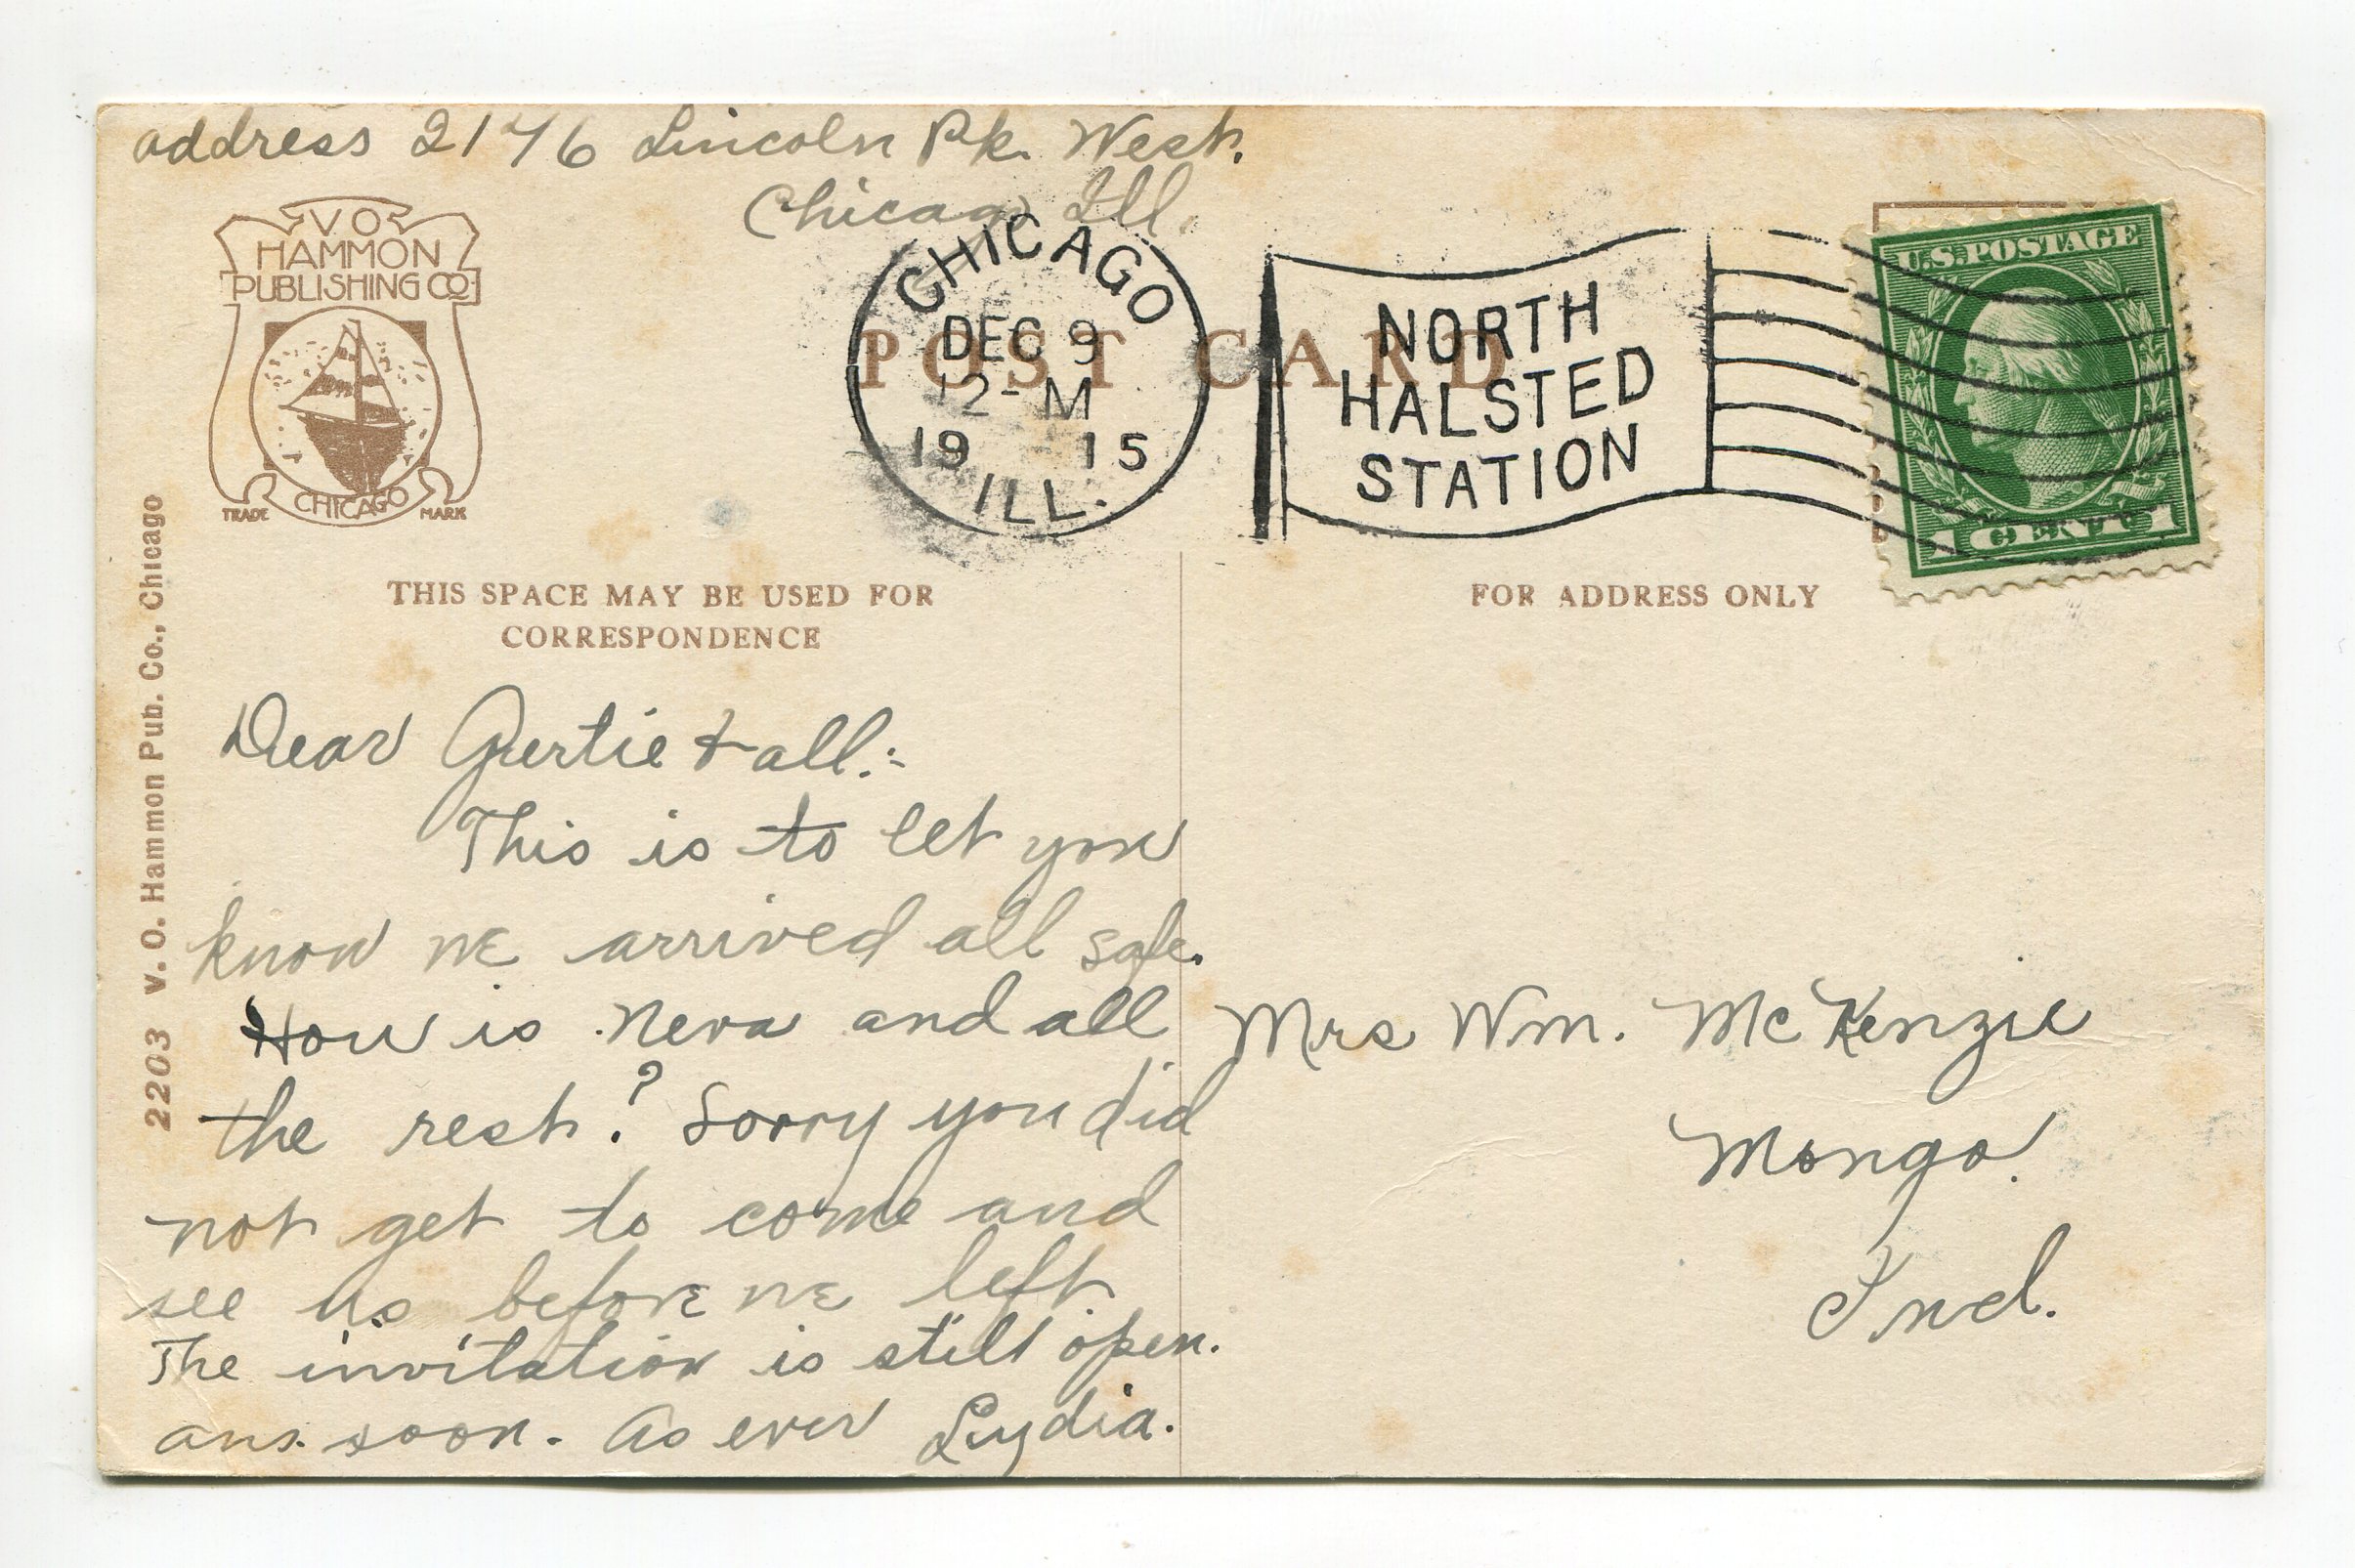 address 2146 Lincoln Pk. West.
Chicago Ill.
V O
HAMMON
PUBLISHING CO.
CHICAGO
TRADE MARK
CHICAGO
DEC 9
12-M
1915
ILL.
NORTH
HALSTED
STATION
U.S. POSTAGE
1 CENT 1
POST CARD
THIS SPACE MAY BE USED FOR
CORRESPONDENCE
FOR ADDRESS ONLY
2203 V. O. Hammon Pub. Co., Chicago
Dear Gertie & all:-
This is to let you
know we arrived all safe.
How is Neva and all
the rest? Sorry you did
not get to come and
see us before we left
The invitation is still open.
ans. soon. As ever Lydia.
Mrs Wm. McKenzie
Mongo.
Ind.